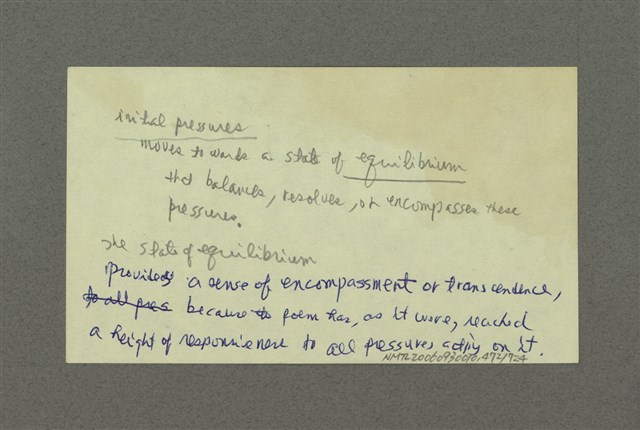 initial pressures
moves towards a state of equilibrium
that balances, resolves, or encompasses these
pressures.
The state of equilibrium
provides a sense of encompassment or transcendence,
to all pres because to poem has, as it were, reached
a height of responsiveness to all pressures acting on it.
NMTL20060930010.472/724